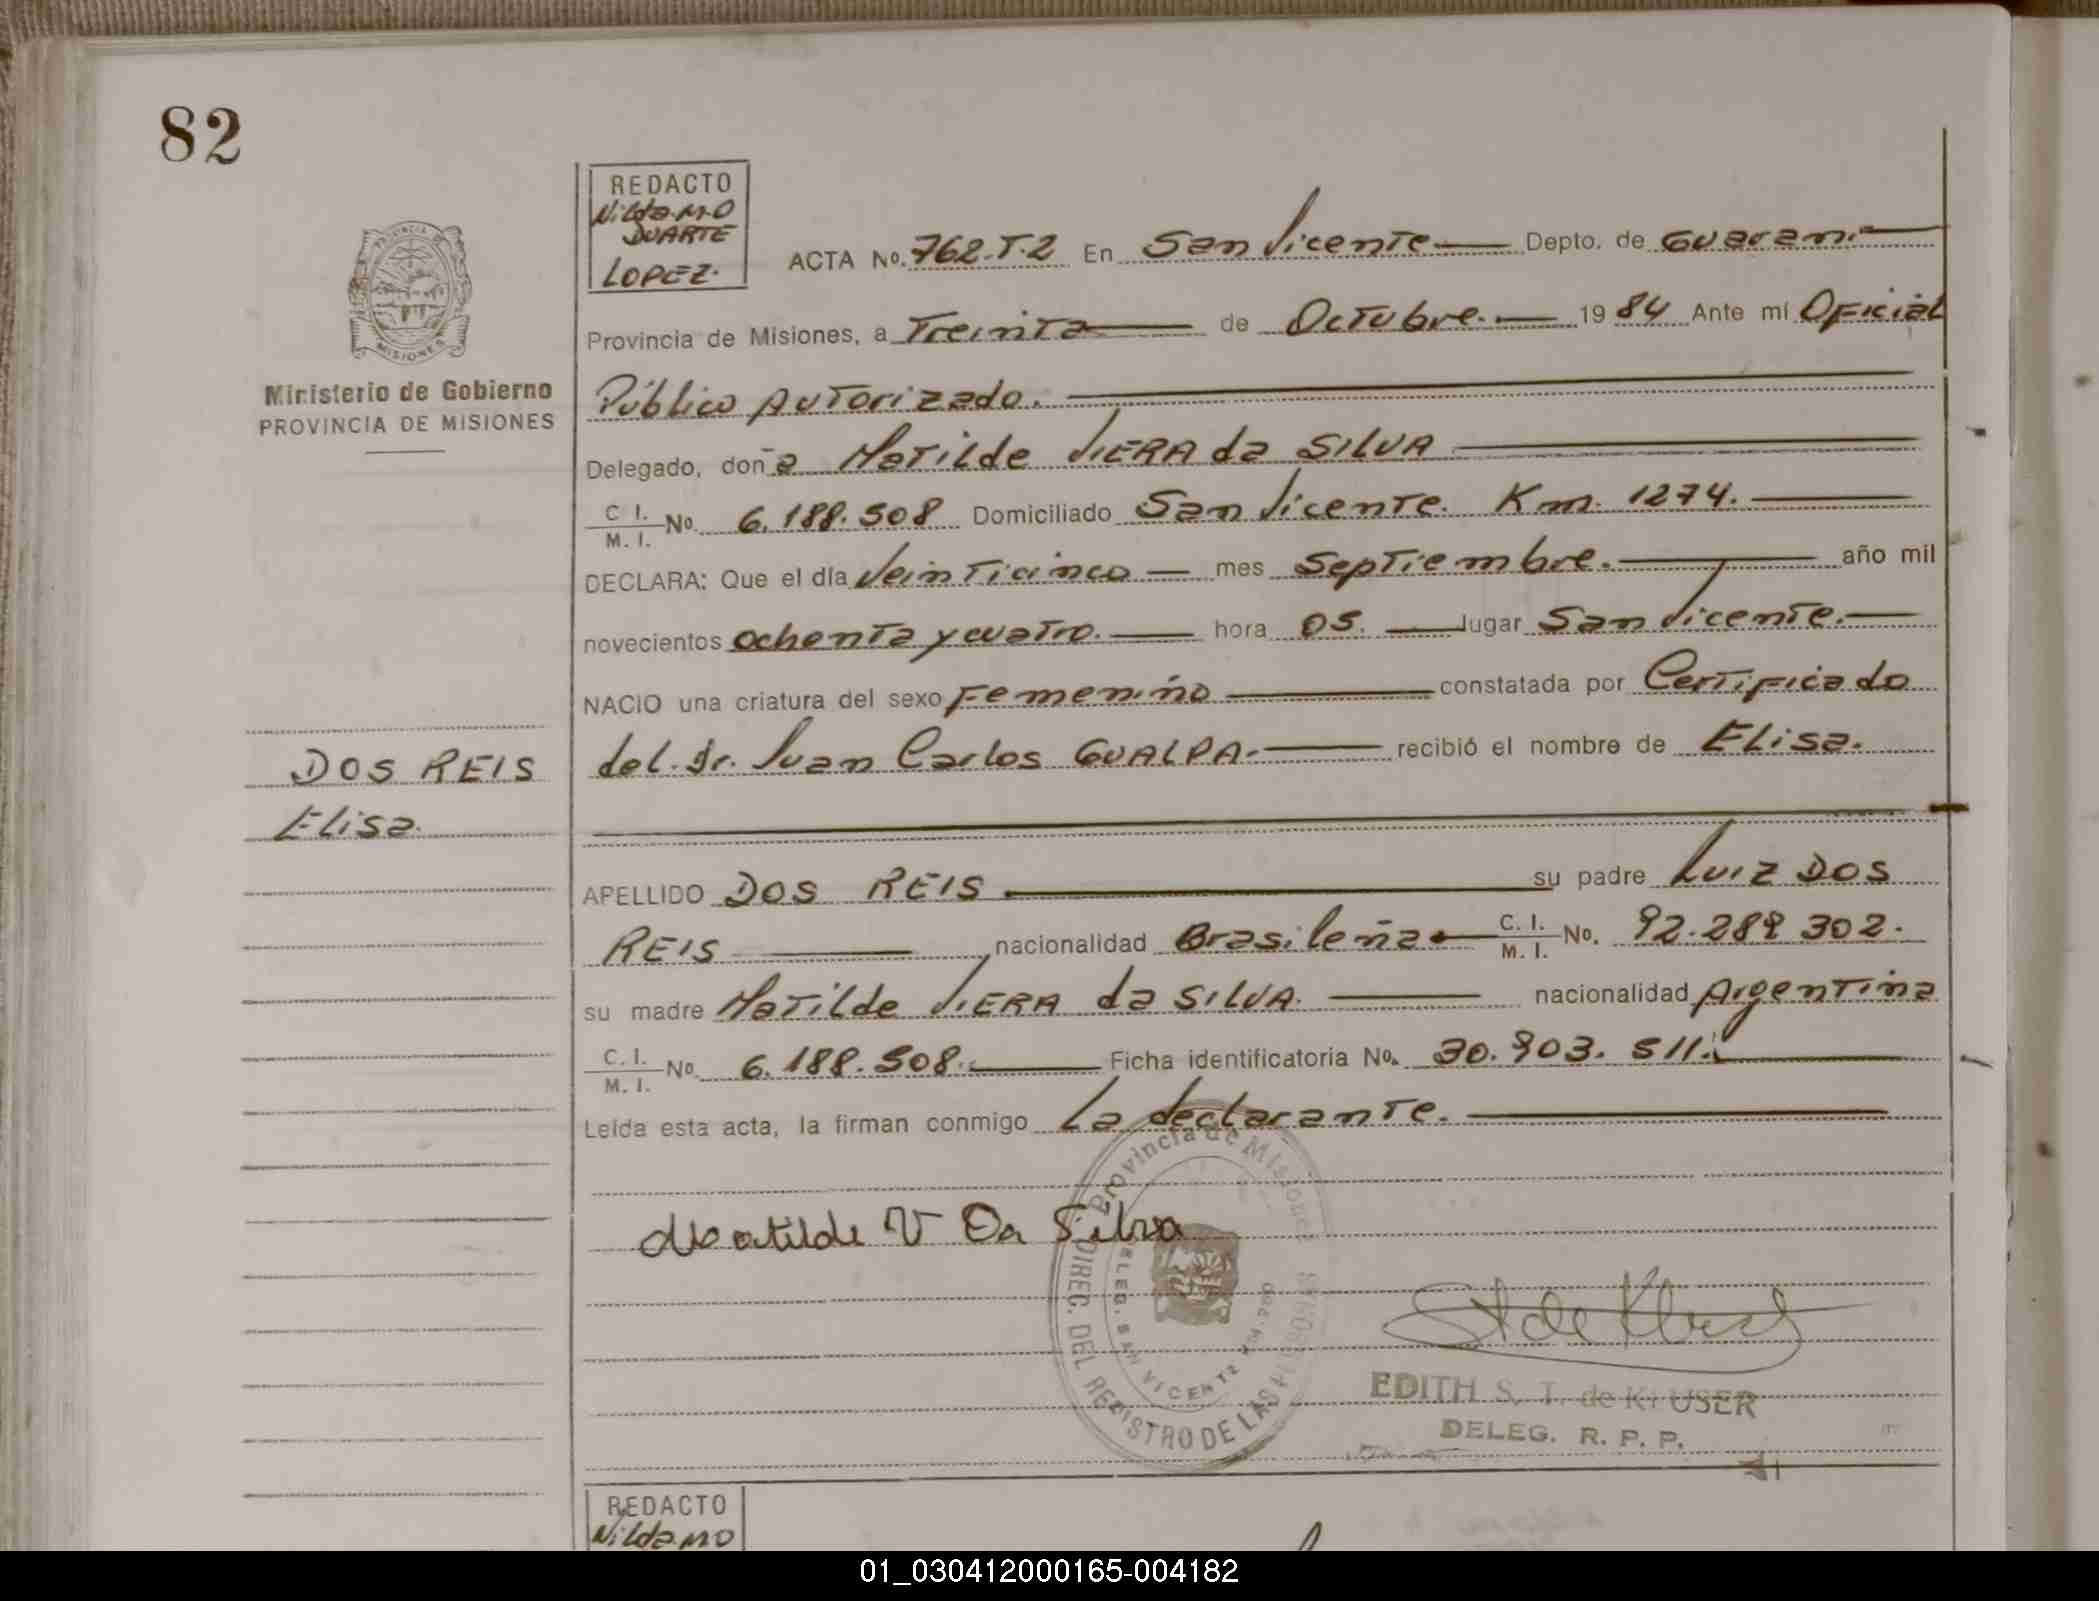 82
REDACTO
Nilda M.O
DUARTE
LOPEZ.
ACTA No. 762.T.2 En San Vicente Depto. de Guarani
Provincia de Misiones, a Treinta de Octubre. 1984 Ante mí Oficial
Público Autorizado.
Delegado, doña Matilde VIERA da SILVA
C. I. / M. I. No. 6.188.508 Domiciliado San Vicente. Km. 1274.
DECLARA: Que el día Veinticinco mes Septiembre. año mil
novecientos ochenta y cuatro. hora 05. lugar San Vicente.
NACIO una criatura del sexo Femenino constatada por Certificado
del. Dr. Juan Carlos GUALPA. recibió el nombre de Elisa.
APELLIDO DOS REIS su padre Luiz DOS
REIS nacionalidad Brasileña C. I. / M. I. No. 92.289 302.
su madre Matilde VIERA da SILVA. nacionalidad Argentina
C. I. / M. I. No. 6.188.508. Ficha identificatoria No. 30.903.511.
Leída esta acta, la firman conmigo La declarante.
Matilde V Da Silva
Provincia de Misiones
DIREC. DEL REGISTRO DE LAS PERSONAS
DELEG. SAN VICENTE
EDITH S. T. de KRUSER
DELEG. R. P. P.
PROVINCIA DE
MISIONES
Ministerio de Gobierno
PROVINCIA DE MISIONES
DOS REIS
Elisa.
REDACTO
Nilda M.O
01_030412000165-004182